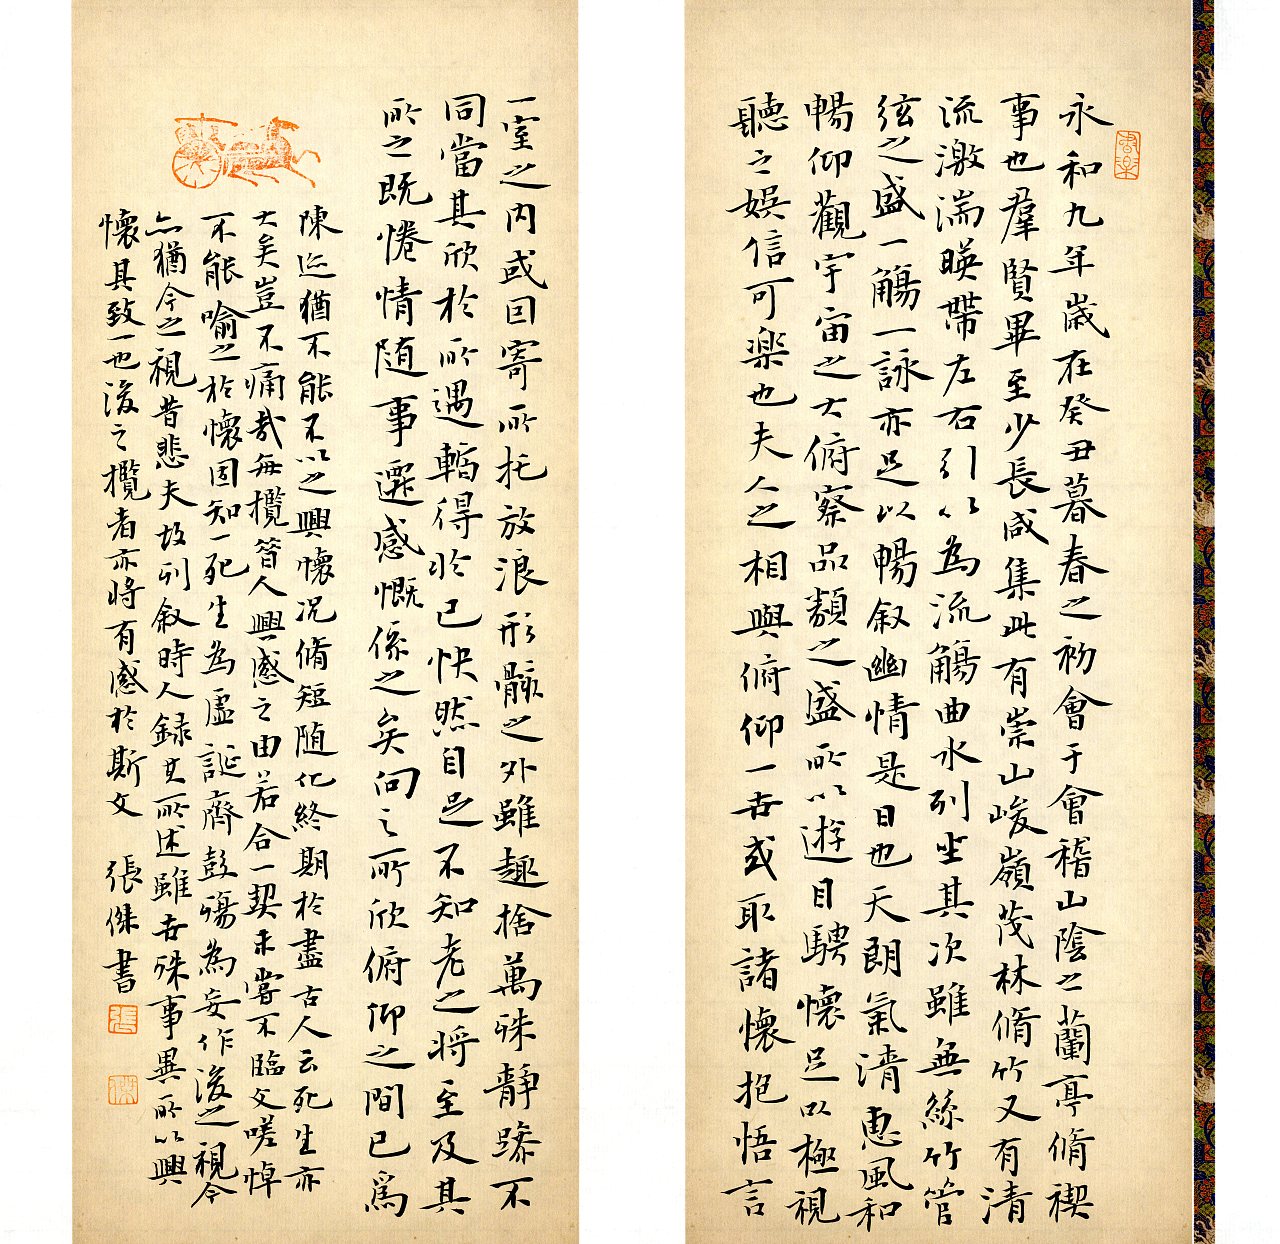 永和九年歲在癸丑暮春之初會于會稽山陰之蘭亭脩禊
事也羣賢畢至少長咸集此有崇山峻嶺茂林脩竹又有清
流激湍暎帶左右引以為流觴曲水列坐其次雖無絲竹管
弦之盛一觴一詠亦足以暢叙幽情是日也天朗氣清惠風和
暢仰觀宇宙之大俯察品類之盛所以遊目騁懷足以極視
聽之娛信可樂也夫人之相與俯仰一世或取諸懷抱悟言
一室之內或因寄所托放浪形骸之外雖趣捨萬殊靜躁不
同當其欣於所遇暫得於己快然自足不知老之將至及其
所之既惓情隨事遷感慨係之矣向之所欣俯仰之間已為
陳迹猶不能不以之興懷况脩短隨化終期於盡古人云死生亦
大矣豈不痛哉每攬昔人興感之由若合一契未嘗不臨文嗟悼
不能喻之於懷固知一死生為虛誕齊彭殤為妄作後之視今
亦猶今之視昔悲夫故列叙時人録其所述雖世殊事異所以興
懷其致一也後之攬者亦將有感於斯文 張傑書
張
傑